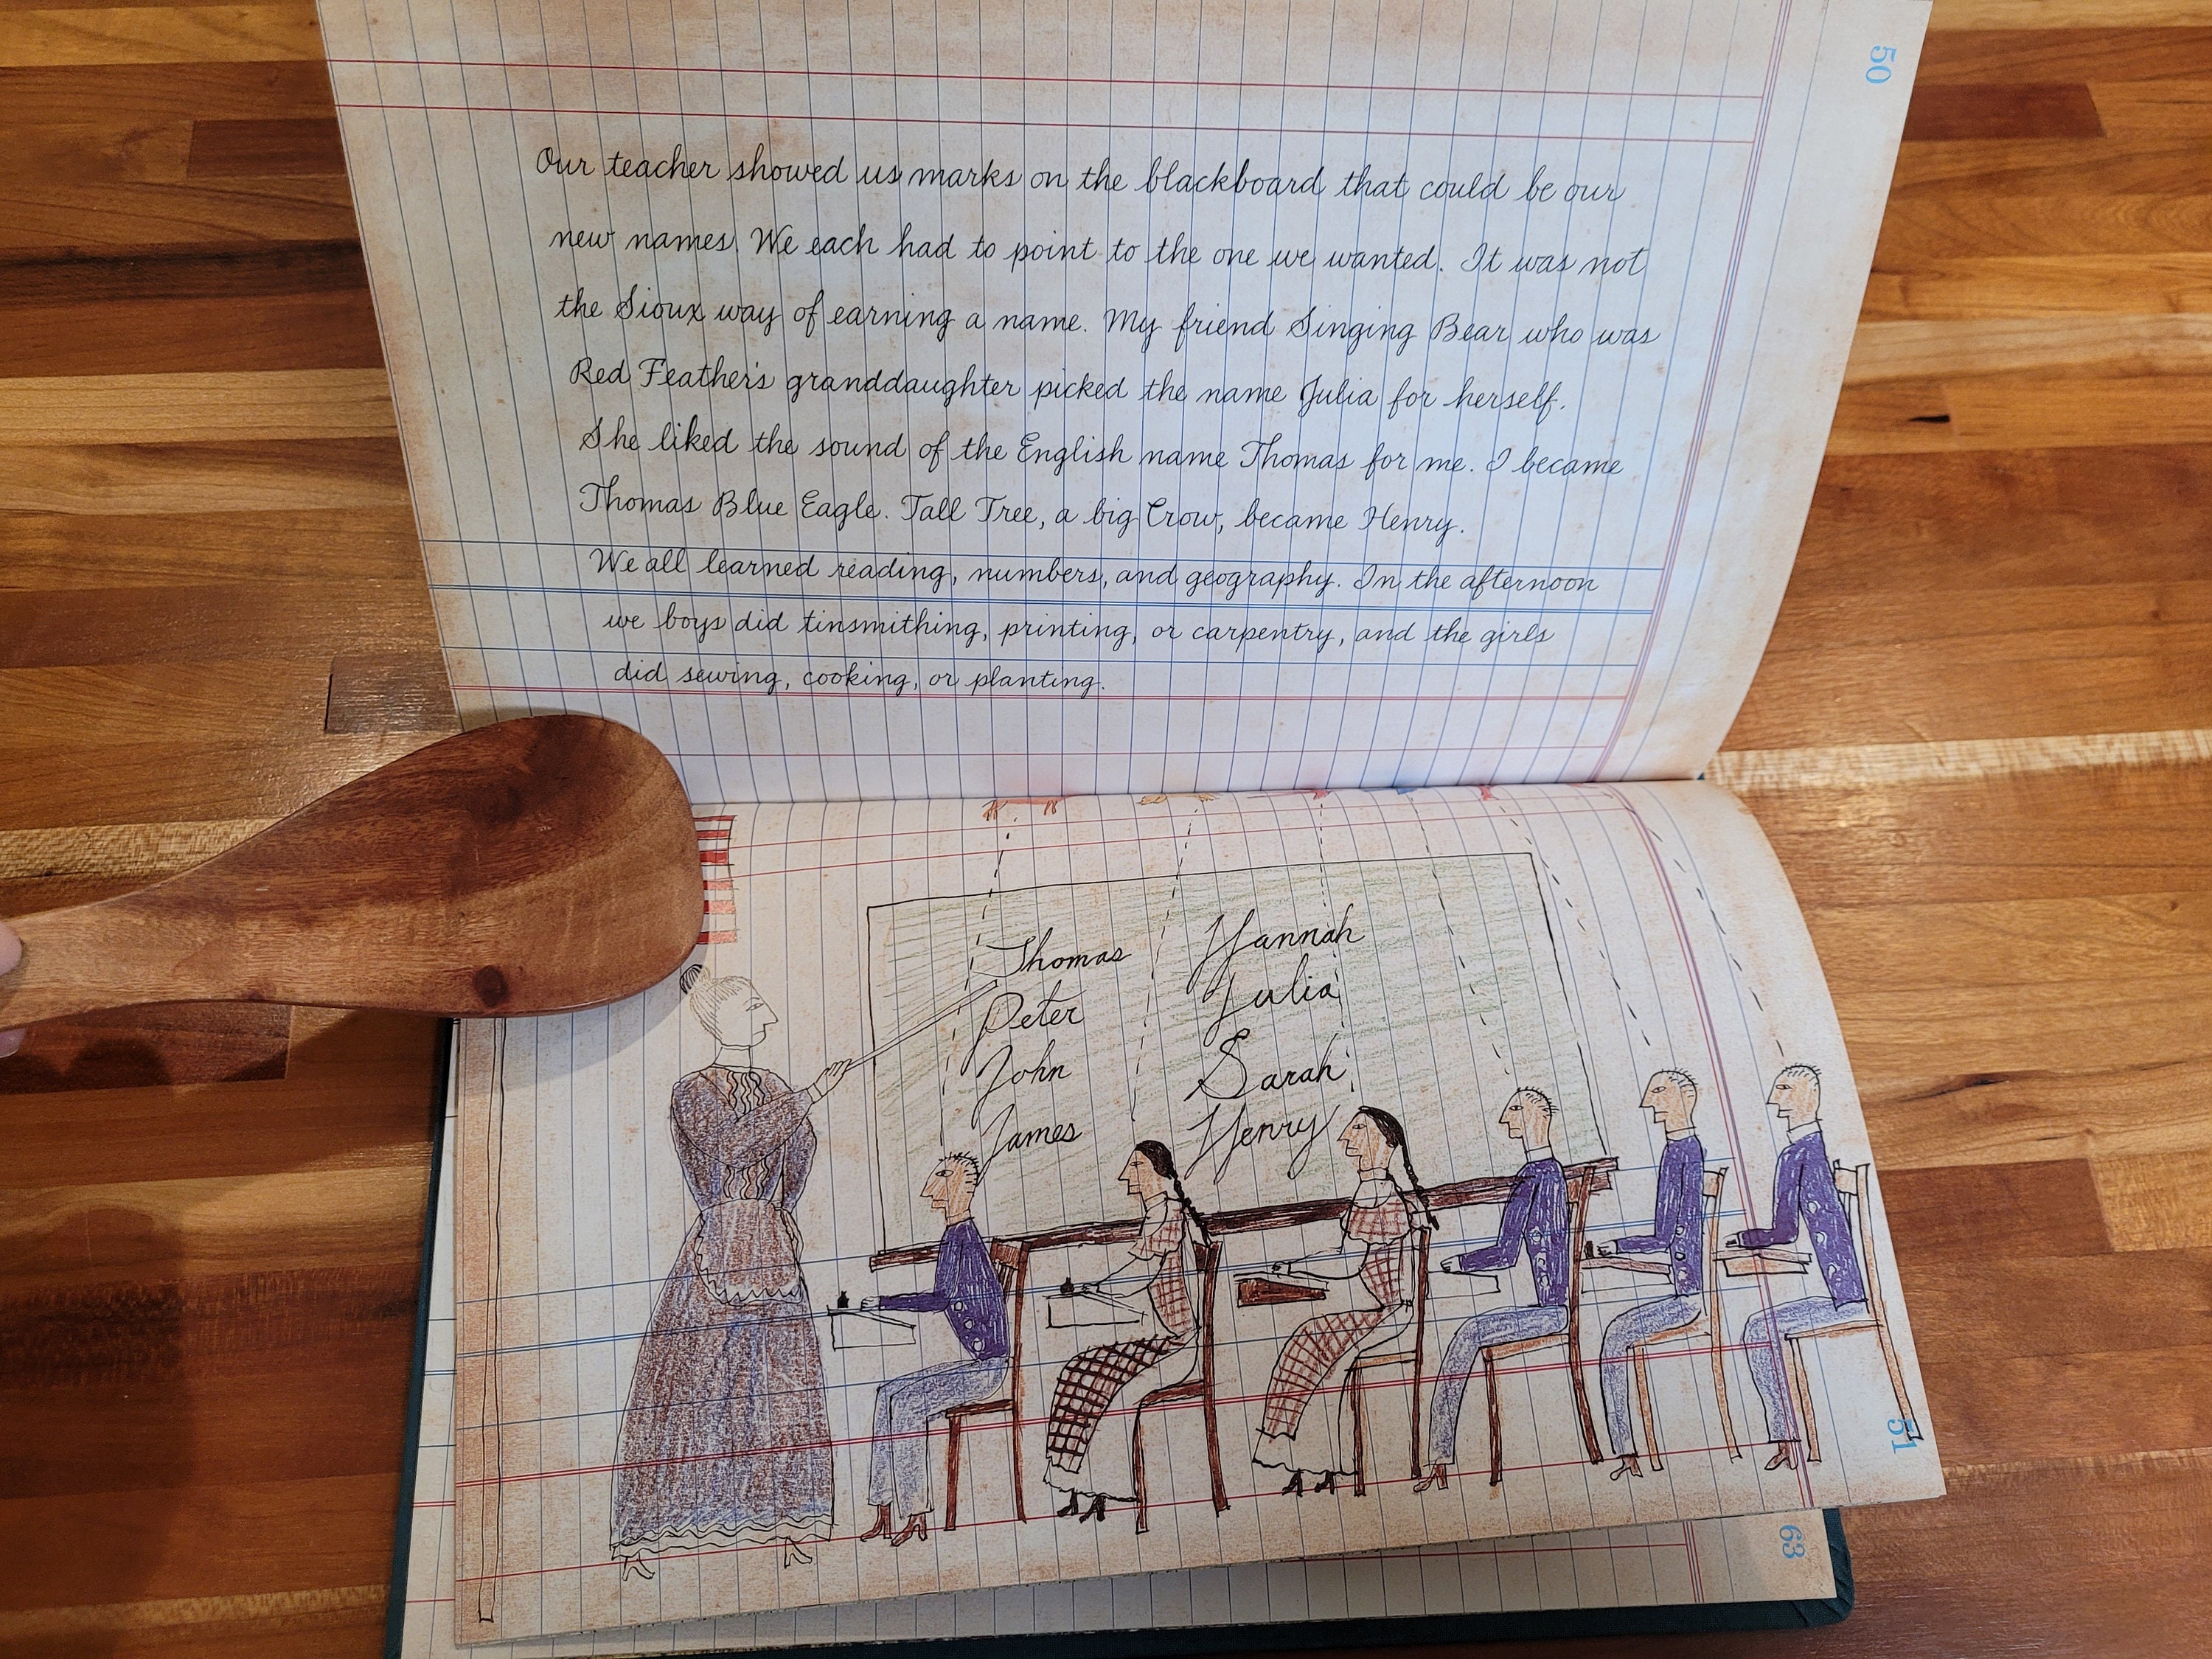 50
Our teacher showed us marks on the blackboard that could be our
new names. We each had to point to the one we wanted. It was not
the Sioux way of earning a name. My friend Singing Bear who was
Red Feather's granddaughter picked the name Julia for herself.
She liked the sound of the English name Thomas for me. I became
Thomas Blue Eagle. Tall Tree, a big Crow, became Henry.
We all learned reading, numbers, and geography. In the afternoon
we boys did tinsmithing, printing, or carpentry, and the girls
did sewing, cooking, or planting.
Thomas
Peter
John
James
Hannah
Julia
Sarah
Henry
51
63